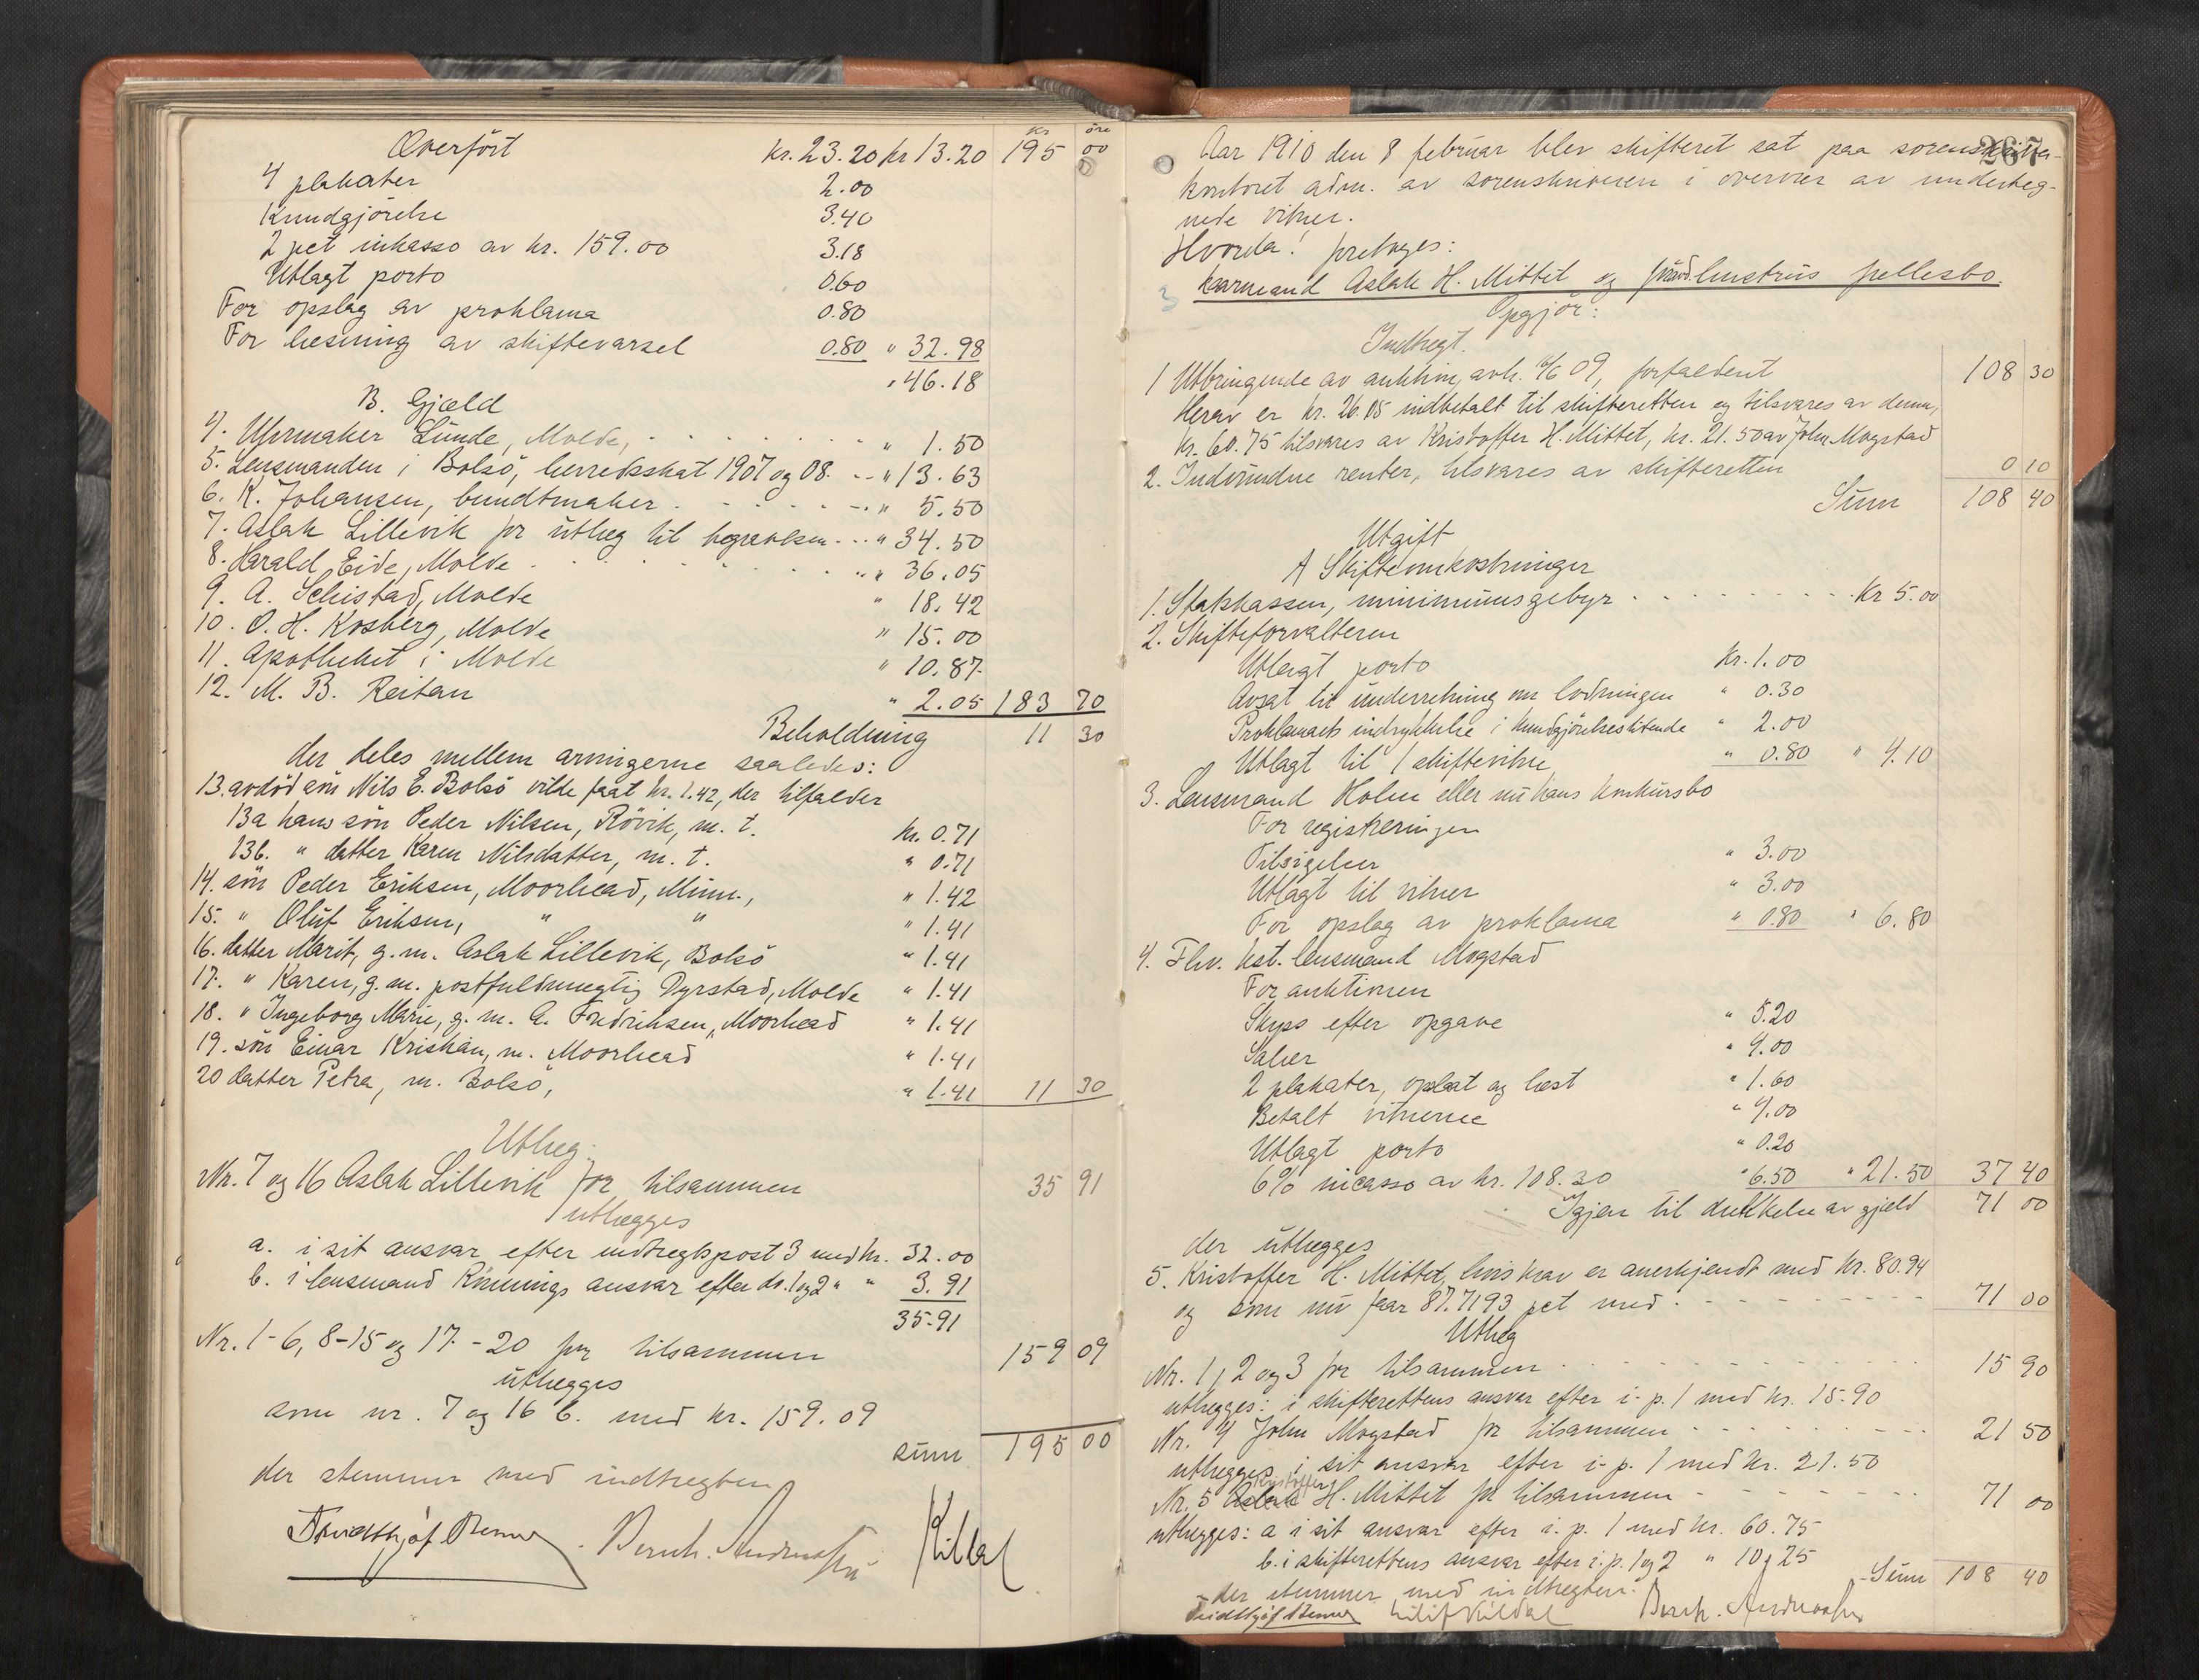 kr øre
Overført kr. 23.20 kr 13.20 195 00
4 plakater 2.00
Kundgjørelse 3.40
2 pct inkasso av kr. 159.00 3.18
Utlagt porto 0.60
For opslag av proklama 0.80
For læsning av skiftevarsel 0.80 " 32.98
" 46.18
B. Gjæld
4. Uhrmaker Lunde, Molde, " 1.50
5. Lensmanden i Bolsø, herredsskat 1907 og 08. " 13.63
6. K. Johansen, bundtmaker. " 5.50
7. Aslak Lillevik for utlæg til begravelsen " 34.50
8. Harald Eide, Molde " 36.05
9. A. Schistad, Molde " 18.42
10. O. H. Kosberg, Molde " 15.00
11. Apotheket i Molde " 10.87
12. M. B. Reitan " 2.05 183 70
Beholdning 11 30
der deles mellem arvingerne saaledes:
13. avdød søn Nils E. Bolsø vilde faat kr. 1.42, der tilfalder
13a hans søn Peder Nilsen, Røvik, m. t. kr. 0.71
13b. " datter Karen Nilsdatter, m. t. " 0.71
14. søn Peder Eriksen, Moorhead, Minn., " 1.42
15. " Oluf Eriksen, " " " 1.41
16. datter Marit, g. m. Aslak Lillevik, Bolsø " 1.41
17. " Karen, g. m. postfuldmægtig Dyrstad, Molde " 1.41
18. " Ingeborg Marie, g. m. A. Fredriksen, Moorhead " 1.41
19. søn Einar Kristian, m. Moorhead " 1.41
20 datter Petra, m. Bolsø, " 1.41 11 30
Utlæg.
Nr. 7 og 16 Aslak Lillevik for tilsammen 35 91
utlægges
a. i sit ansvar efter indtægtspost 3 med kr. 32.00
b. i lensmand Rønnings ansvar efter do. 1 og 2 " " 3.91
35.91
Nr. 1-6, 8-15 og 17-20 for tilsammen 159 09
utlægges
som nr. 7 og 16 b. med kr. 159.09
sum 195 00
der stemmer med indtægten
Bernh. Kildal
267
Aar 1910 den 8 februar blev skifteret sat paa sorenskriver-
kontoret adm. av sorenskriveren i overvær av underteg-
nede vitner.
Hvorda! foretages:
3 kaarmand Aslak H. Mittet og hustrus fællesbo.
Opgjør:
Indtægt.
1 Utbringende av auktion, avh. 09, forfaldent 108 30
Herav er kr. 26.05 indbetalt til skifteretten og tilsvares av denne,
kr. 60.75 tilsvares av Kristoffer H. Mittet, kr. 21.50 av John Mogstad
2. Indvundne renter, tilsvares av skifteretten 0 10
Sum 108 40
Utgift
A Skifteomkostninger
1. Statskassen, minimumsgebyr kr 5.00
2. Skifteforvalteren
Utlagt porto kr. 1.00
Avsat til underretning om lodningen " 0.30
Proklamaets indrykkelse i kundgjørelsestidende " 2.00
Utlagt til 1 skiftevitne " 0.80 " 4.10
3. Lensmand Holm eller nu hans konkursbo
For registreringen
Tilsigelser " 3.00
Utlagt til vitner " 3.00
For opslag av proklama " 0.80 " 6.80
4. Fhv. kst. lensmand Mogstad
For auktionen
Skyss efter opgave " 5.20
Salær " 4.00
2 plakater, opslaat og læst " 1.60
Betalt vitnerne " 4.00
Utlagt porto " 0.20
6% incasso av kr. 108.30 " 6.50 " 21.50 37 40
Igjen til dækkelse av gjeld 71 00
der utlægges
5. Kristoffer H. Mittet, hvis krav er anerkjendt med kr. 80.94
og som nu faar 87.7193 pct med 71 00
Utlæg
Nr. 1, 2 og 3 for tilsammen 15 90
utlægges: i skifterettens ansvar efter i. p. 1 med kr. 15.90
Nr. 4 John Mogstad for tilsammen 21 50
utlægges i sit ansvar efter i. p. 1 med kr. 21.50
Kristoffer
Nr. 5 Aslak H. Mittet for tilsammen 71 00
utlægges: a i sit ansvar efter i. p. 1 med kr. 60.75
b. i skifterettens ansvar efter i. p. 1 og 2 " 10.25
Sum 108 40
der stemmer med indtægten.
Kildal Bernh.